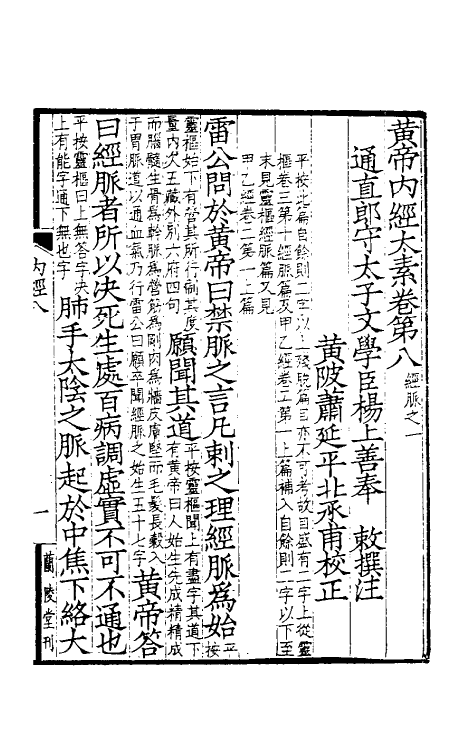 黄帝內經太素卷第八 經脈之一
通直郎守太子文學臣楊上善奉 敕撰注
黄陂蕭延平北承甫校正
平按此篇自餘則二字以上殘脱篇目亦不可考故自盛有二字上從靈
樞卷三第十經脈篇及甲乙經卷二第一上篇補入自餘則二字以下至
末見靈樞經脈篇又見
甲乙經卷二第一上篇
雷公問於黄帝曰禁脈之言凡刺之理經脈爲始 平按
靈樞始下有營其所行制其度
量内次五藏外别六府四句 願聞其道 平按靈樞聞上有盡字其道下
有黄帝曰人始生先成精精成
而腦髓生骨爲幹脈爲營筋爲剛肉爲牆皮膚堅而毛髮長穀入
于胃脈道以通血氣乃行雷公曰願卒聞經脈之始生五十七字 黄帝答
曰經脈者所以决死生處百病調虛實不可不通也
平按靈樞曰上無答字决
上有能字通下無也字 肺手太陰之脈起於中焦下絡大
内經八
一
蘭陵堂刊